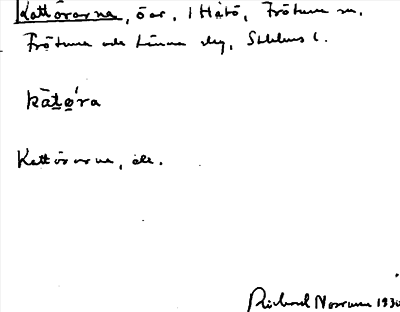 Kattörarna, öar, i Håtö, Frötuna sn.
Frötuna och Länna slg, Sthlms l.
kàtǿra
Kattörarna, öar.
Rickard Norman 193